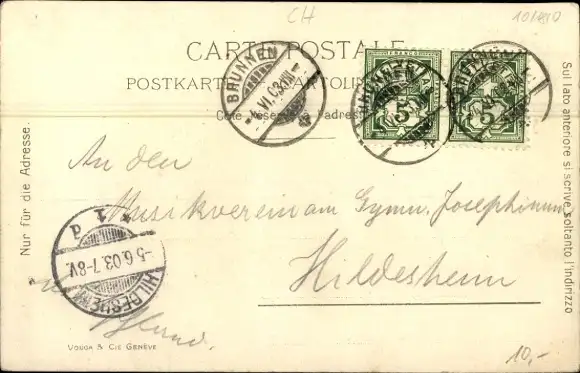 CH
10/480
CARTE POSTALE
POSTKARTE
BRUNNEN
-4.VI.03.VIII-
BRUNNEN
FRANCO
5
5
Côté réservé à l'adresse
Nur für die Adresse.
Sul lato anteriore si scrive soltanto l'indirizzo
An den
Musikverein am Gymn. Josephinum
Hildesheim
HILDESHEIM
-5.6.03.7-8V.
VOUGA & CIE GENÈVE
10,-